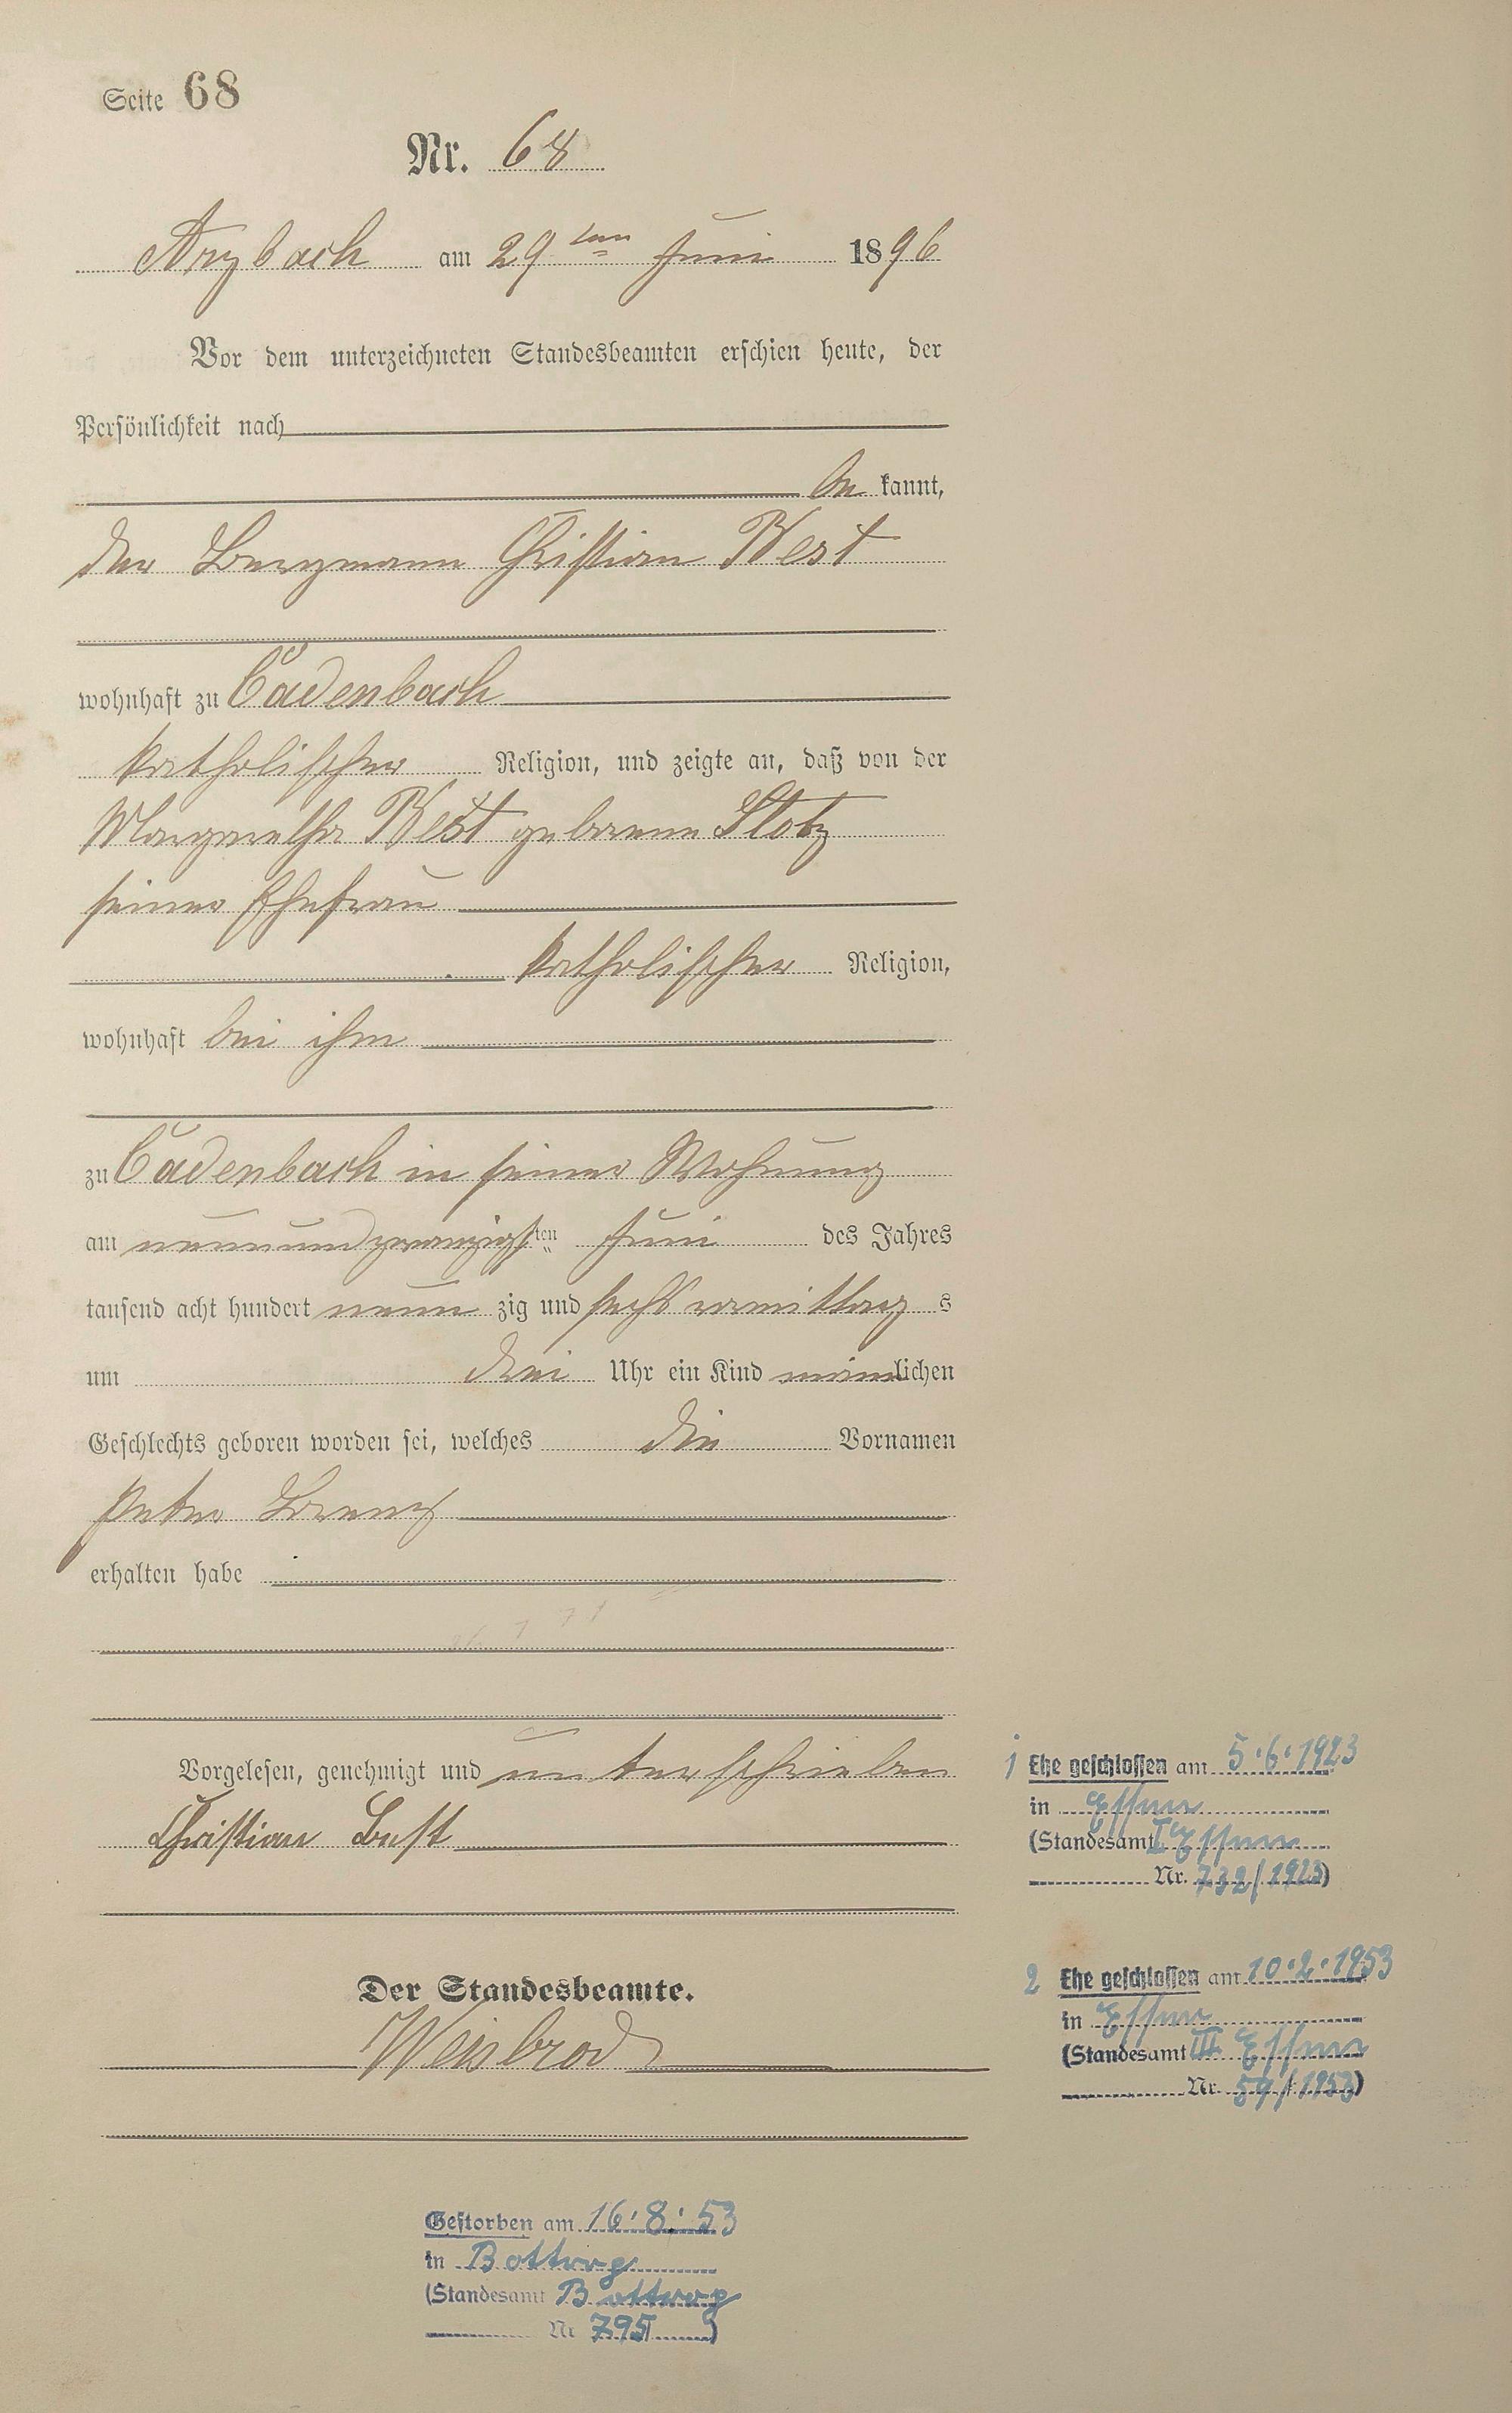 Seite 68
Nr. 68
Arzbach am 29ten Juni 1896
Vor dem unterzeichneten Standesbeamten erschien heute, der
Persönlichkeit nach
be kannt,
der Bergmann Christian Best
wohnhaft zu Cadenbach
katholischer Religion, und zeigte an, daß von der
Margaretha Best geborene Stotz
seiner Ehefrau
katholischer Religion,
wohnhaft bei ihm
zu Cadenbach in seiner Wohnung
am neunundzwanzigsten Juni des Jahres
tausend acht hundert neun zig und sechs vormittag s
um drei Uhr ein Kind männlichen
Geschlechts geboren worden sei, welches die Vornamen
Peter Lorenz
erhalten habe
Vorgelesen, genehmigt und unterschrieben
Christian Best
Der Standesbeamte.
Weisbrod
1 Ehe geschlossen am 5.6.1923
in Essen
(Standesamt I Essen
Nr. 732/1923)
2 Ehe geschlossen am 10.2.1953
in Essen
(Standesamt III Essen
Nr. 59/1953)
Gestorben am 16.8.53
in Bottrop
(Standesamt Bottrop
Nr 795)